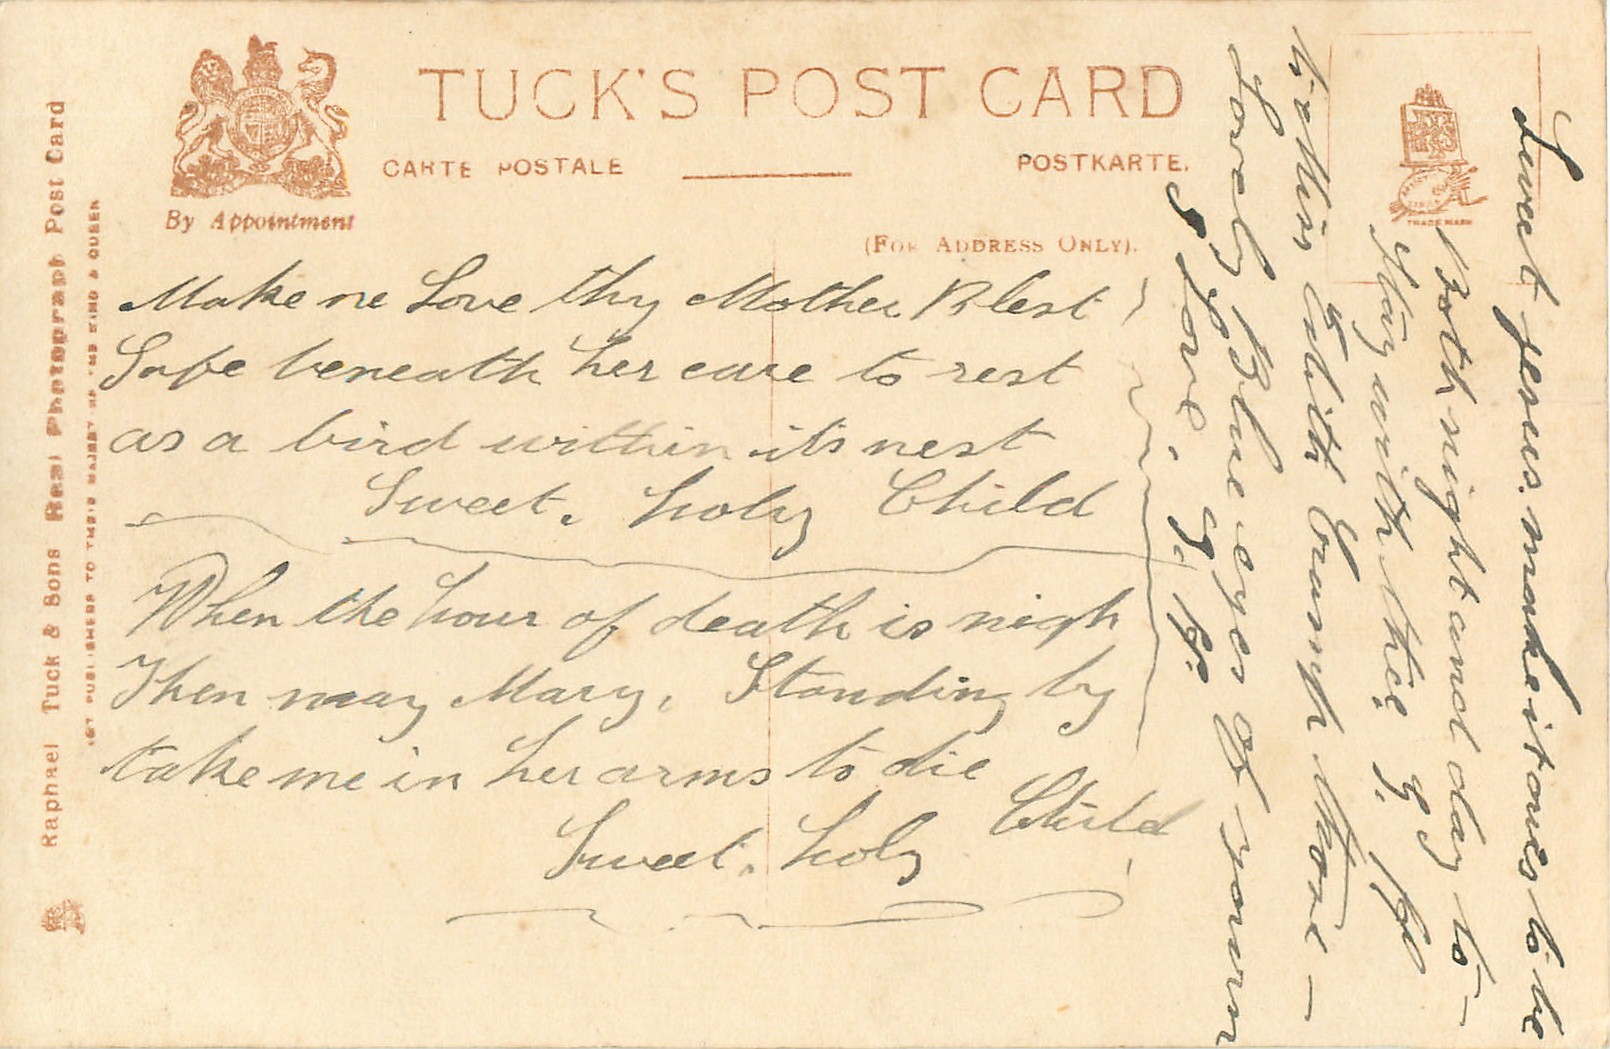 TUCK'S POST CARD
CARTE POSTALE
POSTKARTE.
By Appointment
(FOR ADDRESS ONLY).
TRADE MARK
Raphael Tuck & Sons Real Photograph Post Card
ART PUBLISHERS TO THEIR MAJESTIES THE KING & QUEEN
Make me Love thy Mother Blest
Safe beneath her care to rest
as a bird within it's nest
Sweet. holy Child
When the hour of death is nigh
Then may Mary, Standing by
take me in her arms to die
Sweet. holy Child
Sweet Jesus. make it ours to be
Both night and day to –
Stay with thee
to Men with more –
Lovely Blue eyes of yourn
I Love.